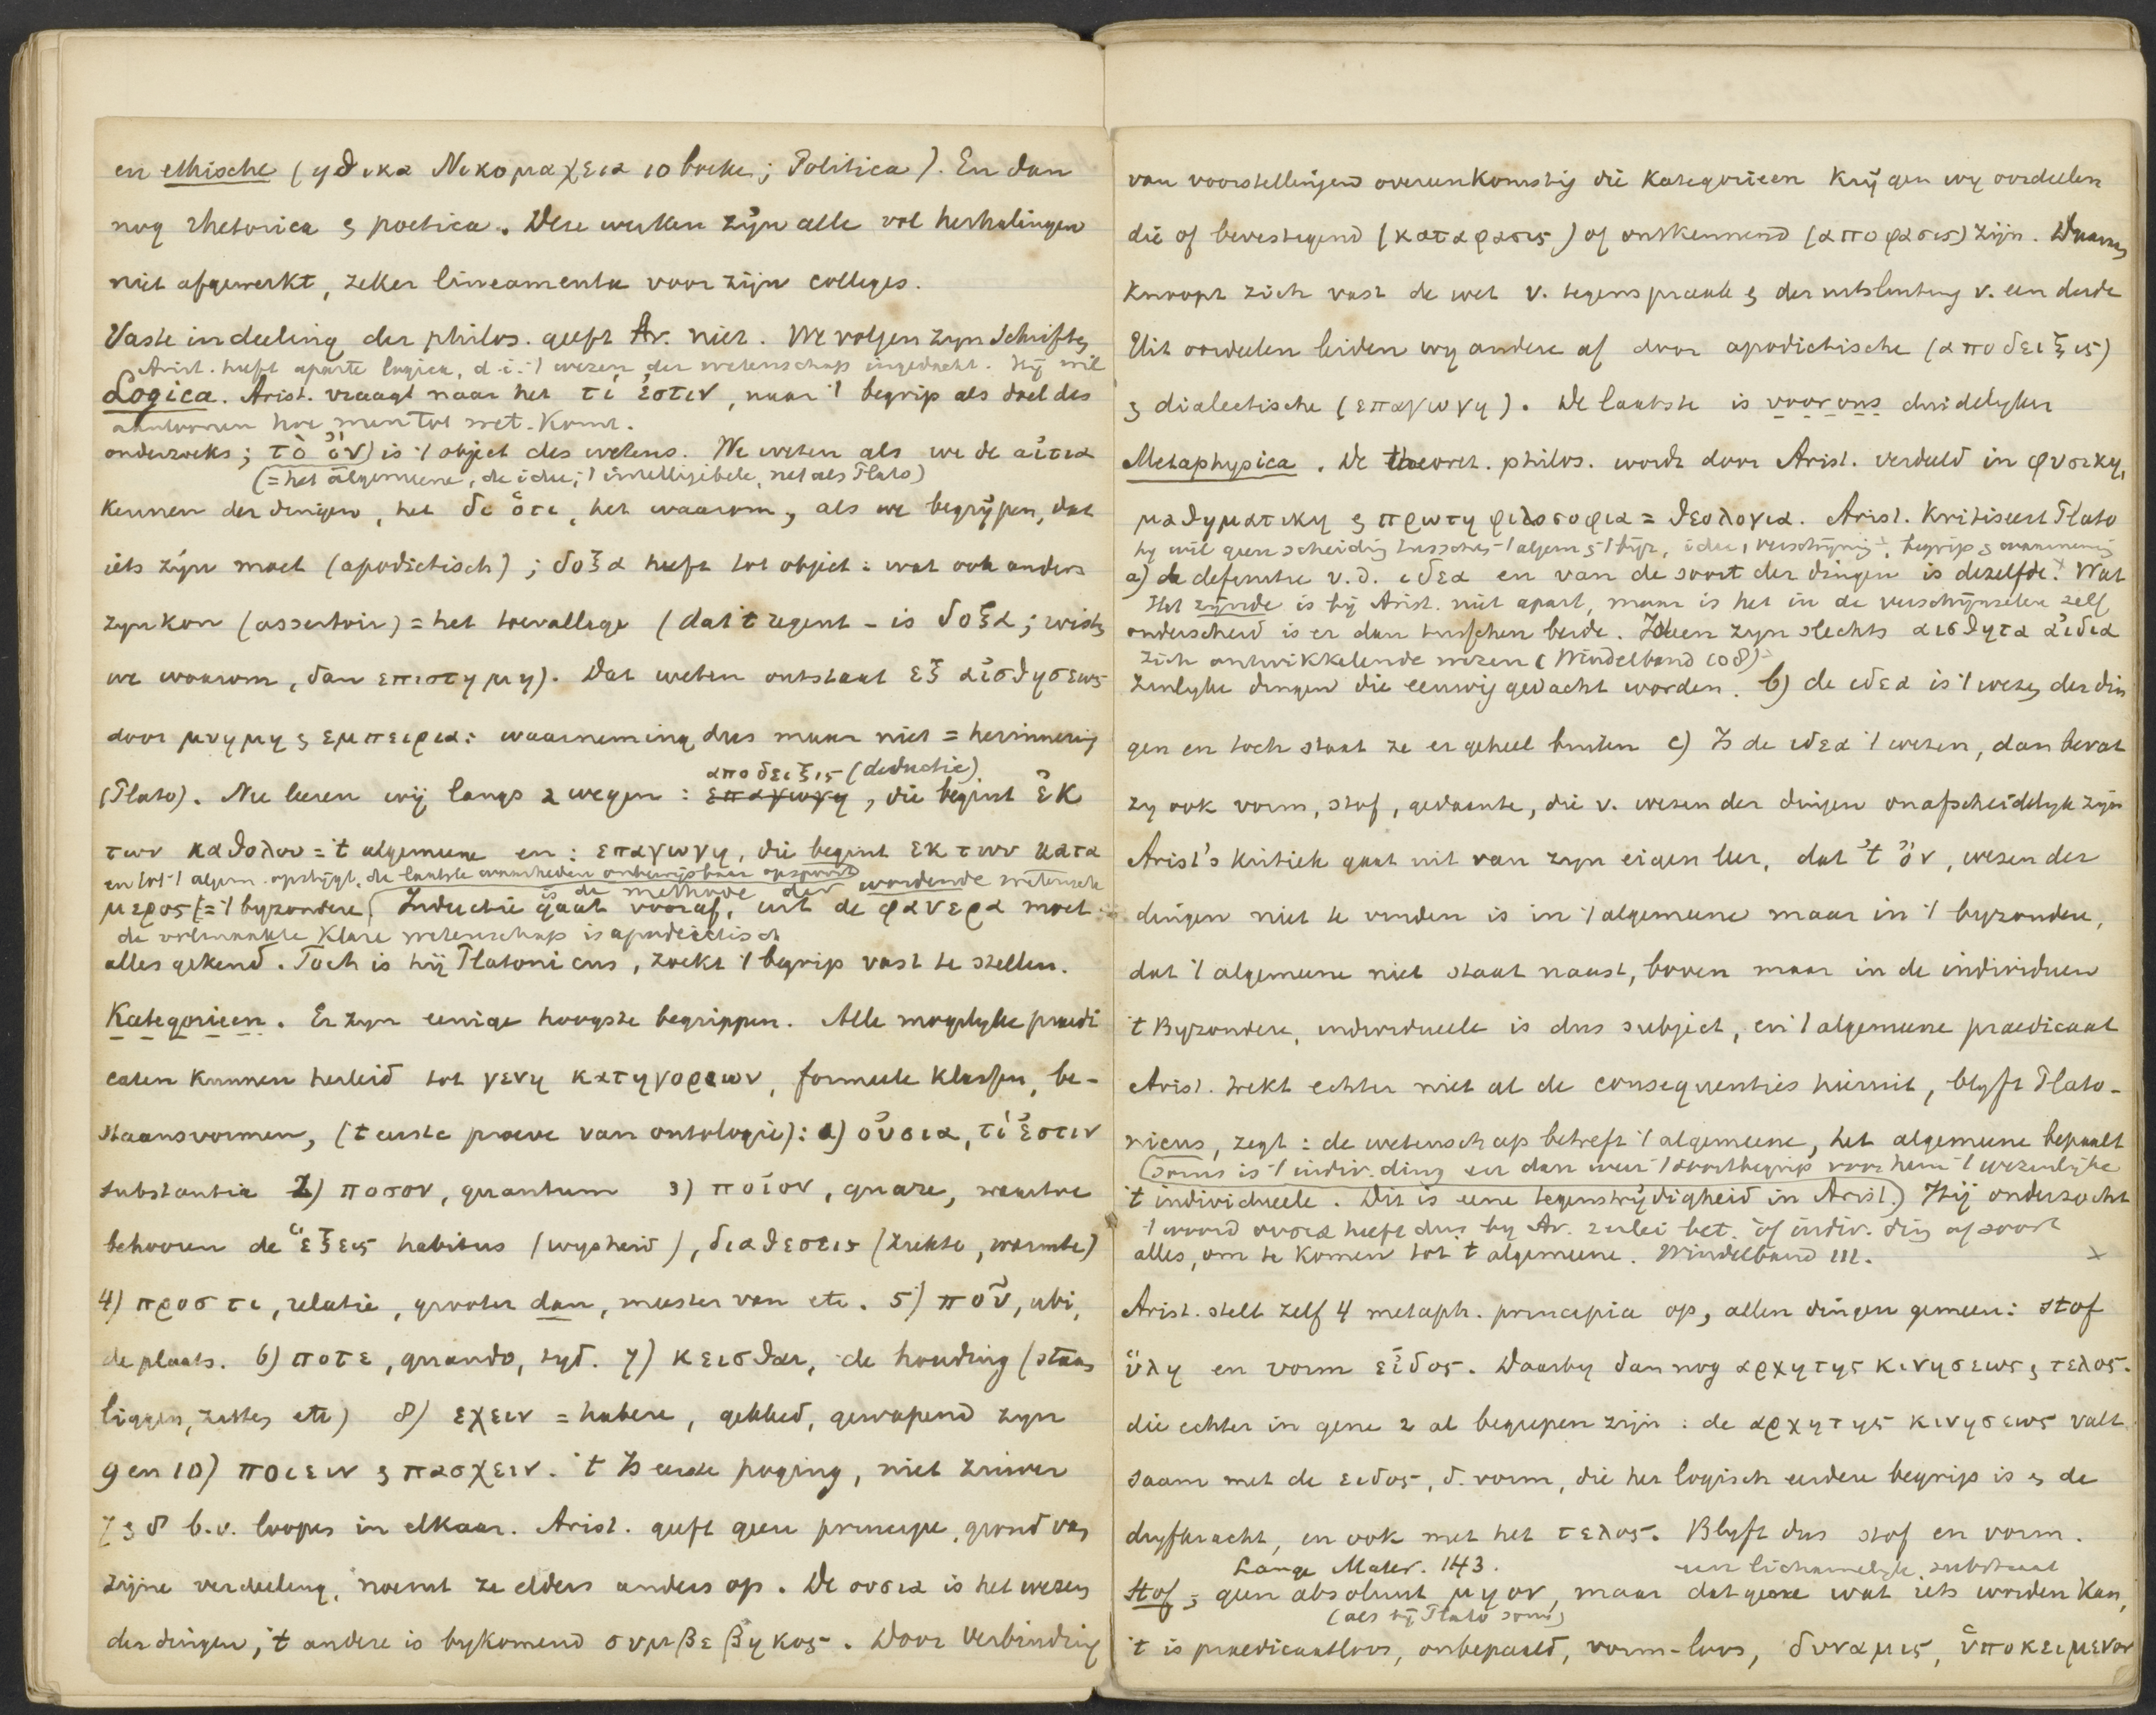 en ethische (ηθικα Νικομαχεια 10 boeken; Politica). En dan
nog rhetorica & poetica. Deze werken zijn alle vol herhalingen
niet afgewerkt, zeker lineamenta voor zijn colleges.
Vaste indeeling der philos. geeft Ar. niet. We volgen zijn schriften
Arist. heeft aparte logica, d.i. 't wezen der wetenschap ingedacht. Hij wil
Logica. Arist. vraagt naar het τί ἐστιν, naar 't begrip als doel des
aantoonen hoe men tot wet. komt.
onderzoeks; τὸ ὄν) is 't object des wetens. We weten als we de αἰτια
(= het algemeene, de idee; 't intelligibele, net als Plato)
kennen der dingen, het δι ὅτι, het waarom, als we begrijpen, dat
iets zijn moet (apodictisch); δοξα heeft tot object: wat ook anders
zijn kon (assertoir) = het toevallige (dat 't regent - is δοξα; wisten
we waarom, dan επιστημη). Dat weten ontstaat εξ αἰσθησεως
door μνημη & εμπειρια: waarneming dus maar niet = herinnering
αποδειξις (deductie)
(Plato). Nu leeren wij langs 2 wegen: επαγωγη, die begint ἐκ
των καθολου = 't algemeene en: επαγωγη, die begint εκ των κατα
en tot 't algem. opstijgt, de laatste waarheden onbewijsbaar opspoort
is de methode der wordende wetensch
μερος (= 't byzondere. Inductie gaat vooraf, uit de φανερα moet
de volmaakte klare wetenschap is apodictisch
alles gekend. Toch is hij Platonicus, zoekt 't begrip vast te stellen.
Kategorieen. Er zyn eenige hoogste begrippen. Alle mogelyke praedi
caten kunnen herleid tot γενη κατηγοριων, formeele klassen, be-
staansvormen, ('t eerste proeve van ontologie): 1) οὐσια, τί ἐστιν
substantia 2) ποσον, quantum 3) ποῖον, quale, waartoe
behooren de ἕξεις habitus (wysheid), διαθεσεις (ziekte, warmte)
4) προς τι, relatie, grooter dan, meester van etc. 5) ποῦ, ubi,
de plaats. 6) ποτε, quando, tyd. 7) κεισθαι, de houding (staan
liggen, zitten etc) 8) εχειν = habere, gekleed, gewapend zyn
9 en 10) ποιειν & πασχειν. 't Is eerste poging, niet zuiver
7 & 8 b.v. loopen in elkaar. Arist. geeft geen principe, grond van
zijne verdeeling, noemt ze elders anders op. De ουσια is het wezen
der dingen, 't andere is bykomend συμβεβηκος. Door verbinding
van voorstellingen overeenkomstig die kategorieen krijgen wy oordeelen
die of bevestigend (καταφασις) of ontkennend (αποφασις) zijn. Daaraan
knoopt zich vast de wet v. tegenspraak & der uitsluiting v. een derde
Uit oordeelen leiden wy andere af door apodictische (αποδειξις)
& dialectische (επαγωγη). De laatste is voor ons duidelyker
Metaphysica. De theoret. philos. wordt door Arist. verdeeld in φυσικη,
μαθηματικη & πρωτη φιλοσοφια = θεολογια. Arist. kritiseert Plato
hy wil geen scheiding tusschen 't algem & 't byz, idee, verschijning, begrip & waarneming
a) de definitie v.d. ιδεα en van de soort der dingen is dezelfde. Wat
Het zijnde is bij Arist. niet apart, maar is het in de verschijnselen zelf
onderscheid is er dan tusschen beide. Ideen zyn slechts αισθητα αἰδια
zich ontwikkelende wezen (Windelband 108)
zinlyke dingen die eeuwig gedacht worden. b) de ιδεα is 't wezen der din
gen en toch staat ze er geheel buiten c) Is de ιδεα 't wezen, dan bevat
zy ook vorm, stof, gedaante, die v. wezen der dingen onafscheidelyk zijn
Arist's kritiek gaat uit van zyn eigen leer, dat 't ὄν, wezen der
dingen niet te vinden is in 't algemeene maar in 't byzondere,
dat 't algemeene niet staat naast, boven maar in de individuen
't Byzondere, individueele is dus subject, en 't algemeene praedicaat
Arist. trekt echter niet al de consequenties hieruit, blyft Plato-
nicus, zegt: de wetenschap betreft 't algemeene, het algemeene bepaalt
(soms is 't indiv. ding en dan weer 't soortbegrip voor hem 't wezenlyke
't individueele. Dit is eene tegenstrijdigheid in Arist.) Hij onderzocht
't woord ουσια heeft dus by Ar. 2erlei bet. òf indiv. ding of soort
alles, om te komen tot 't algemeene. Windelband 111. x
Arist. stelt zelf 4 metaph. principia op, allen dingen gemeen: stof
ὕλη en vorm εἶδος. Daarby dan nog αρχη της κινησεως & τελος.
die echter in gene 2 al begrepen zijn: de αρχη της κινησεως valt
saam met de ειδος, d. vorm, die het logisch eerdere begrip is & de
dryfkracht, en ook met het τελος. Blyft dus stof en vorm.
Lange Mater. 143. een lichamelyk substraat
Stof, geen absoluut μη ον, maar datgene wat iets worden kan,
(als bij Plato soms)
't is praedicaatloos, onbepaald, vorm-loos, δυναμις, ὑποκειμενον